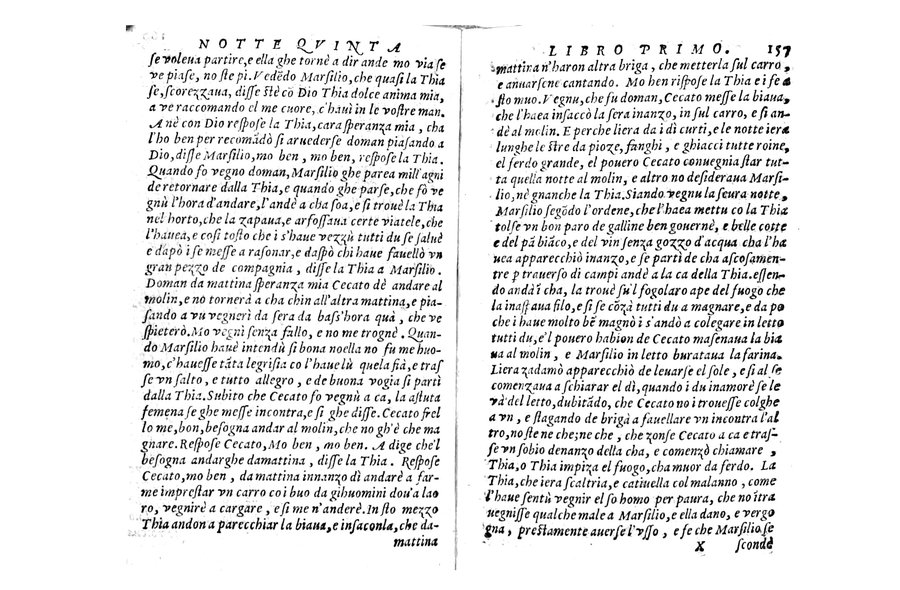 NOTTE QVINTA
se voleua partire, e ella ghe tornè a dir ande mo via se
ve piase, no ste pi. Vedēdo Marsilio, che quasi la Thia
se, scorezzaua, disse stè cō Dio Thia dolce anima mia,
a ve raccomando el me cuore, c'hauì in le vostre man.
Anè con Dio respose la Thia, cara speranza mia, cha
l'ho ben per recomādò si aruederse doman piasando a
Dio, disse Marsilio, mo ben, mo ben, respose la Thia.
Quando fo vegno doman, Marsilio ghe parea mill'agni
de retornare dalla Thia, e quando ghe parse, che fò ve
gnù l'hora d'andare, l'andè a cha soa, e si trouè la Thia
nel horto, che la zapaua, e arfossaua certe viatele, che
l'hauea, e così tosto che i s'haue vezzù tutti du se saluè
e dapò i se messe a rasonar, e daspò chi haue fauellò vn
gran pezzo de compagnia, disse la Thia a Marsilio.
Doman da mattina speranza mia Cecato dè andare al
molin, e no tornerà a cha chin all'altra mattina, e pia-
sando a vu vegnerì da sera da bass'hora quà, che ve
spieterò. Mo vegnì senza fallo, e no me trognè. Quan-
do Marsilio hauè intendù sì bona noella no fu me huo-
mo, c'hauesse tāta legrisia co l'haue lù quela fià, e tras
se vn salto, e tutto allegro, e de buona vogia si partì
dalla Thia. Subito che Cecato fo vegnù a ca, la astuta
femena se ghe messe incontra, e si ghe disse. Cecato frel
lo me, bon, besogna andar al molin, che no gh'è che ma
gnare. Respose Cecato, Mo ben, mo ben. A dige che'l
besogna andarghe damattina, disse la Thia. Respose
Cecato, mo ben, da mattina innanzo dì andarè a far-
me imprestar vn carro coi buo da gihuomini dou'a lao
ro, vegnirè a cargare, e si me n'anderè. In sto mezzo
Thia andon a parecchiar la biaua, e insaconla, che da-
mattina
LIBRO PRIMO. 157
mattina n'haron altra briga, che metterla sul carro,
e anuarsene cantando. Mo ben rispose la Thia e i se a
sto muo. Vegnu, che fu doman, Cecato messe la biaua,
che l'haea insaccò la sera inanzo, in sul carro, e si an-
dè al molin. E perche liera da i dì curti, e le notte iera
lunghe le stre da pioze, fanghi, e ghiacci tutte roine,
el ferdo grande, el pouero Cecato conuegnia star tut-
ta quella notte al molin, e altro no desideraua Marsi-
lio, nè gnanche la Thia. Siando vegnu la scura notte,
Marsilio segōdo l'ordene, che l'haea mettu co la Thia
tolse vn bon paro de galline ben gouernè, e belle cotte
e del pā biāco, e del vin senza gozzo d'acqua cha l'ha
uea apparecchiò inanzo, e se partì de cha ascosamen-
tre p trauerso di campi andè a la ca della Thia. essen-
do andà ī cha, la trouè su'l fogolaro ape del fuogo che
la inaspaua filo, e si se cōzà tutti du a magnare, e da po
che i haue molto bē magnò i s'andò a colegare in letto
tutti du, e'l pouero habion de Cecato masenaua la bia
ua al molin, e Marsilio in letto burataua la farina.
Liera zadamò apparecchiò de leuarse el sole, e si al se
comenzaua a schiarar el dì, quando i du inamorè se le
và del letto, dubitādo, che Cecato no i trouesse colghe
a vn, e stagando de brigà a fauellare vn incontra l'al
tro, no ste ne che; ne che, che zonse Cecato a ca e tras-
se vn sobio denanzo della cha, e comenzò chiamare,
Thia, o Thia impiza el fuogo, cha muor da ferdo. La
Thia, che iera scaltria, e catiuella col malanno, come
l'haue sentù vegnir el so homo per paura, che no itra
uegnisse qualche male a Marsilio, e ella dano, e vergo
gna, prestamente auerse l'vsso, e fe che Marsilio se
X scondè